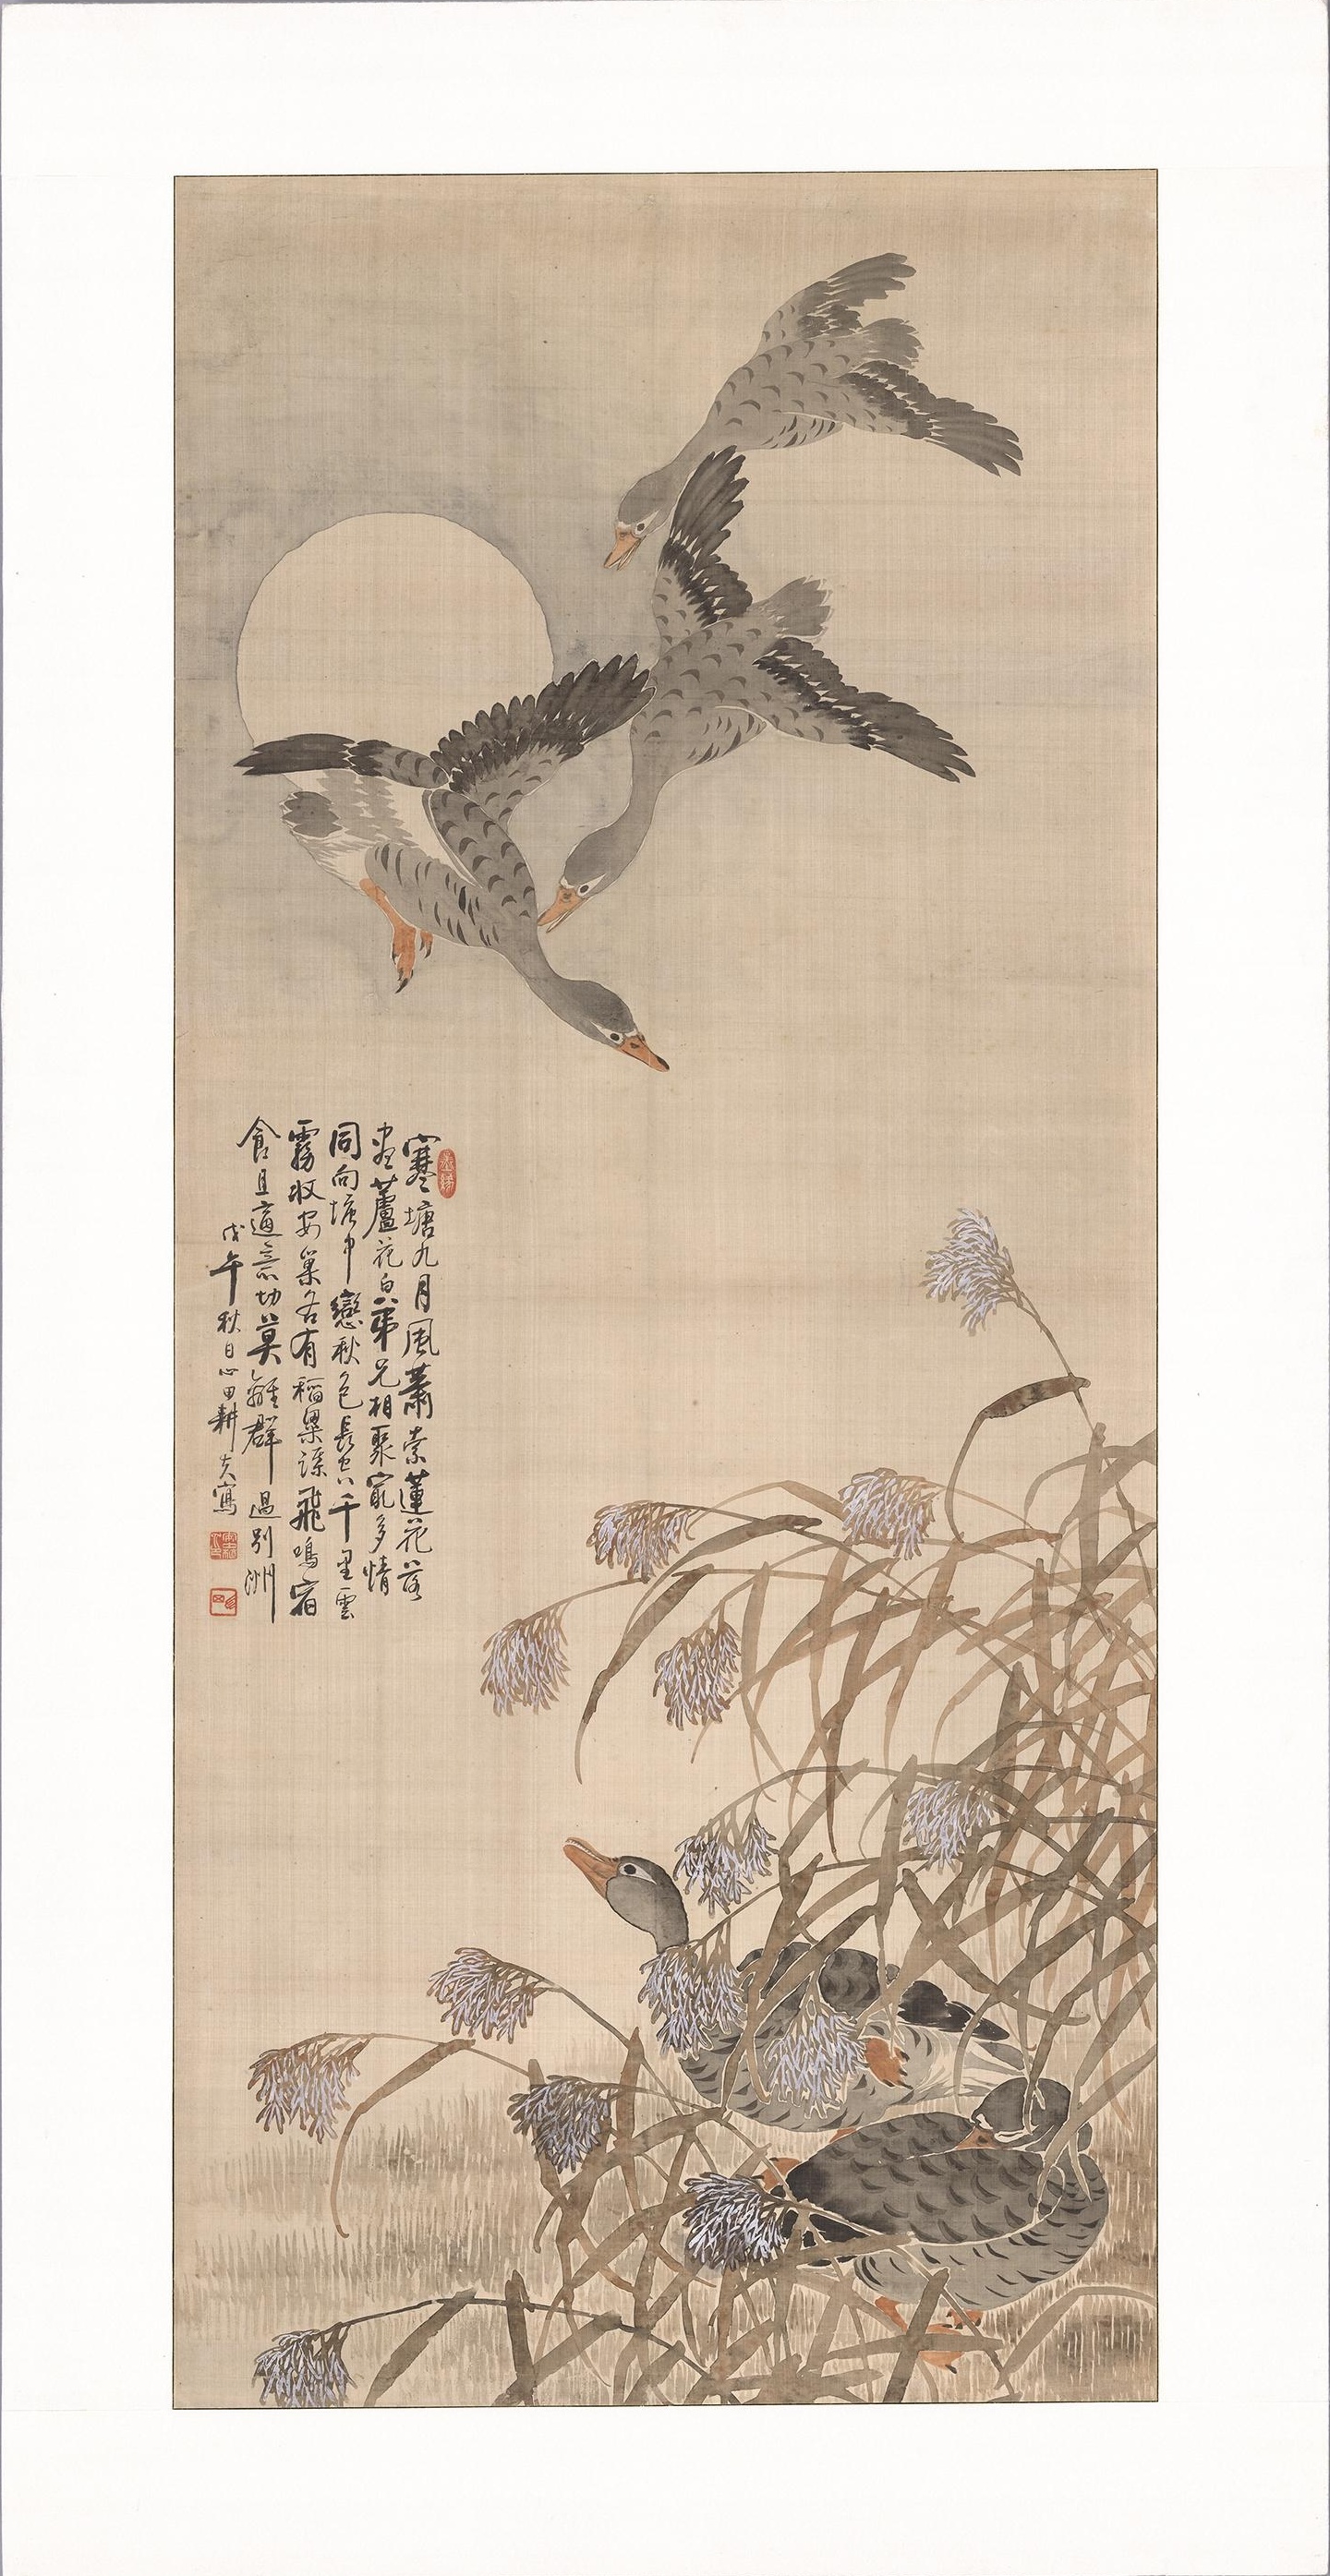 寒塘九月風蕭索蓮花落
盡蘆花白弟兄相聚宛多情
同向塘中戀秋色長空千里雲
霧收安巢各有稻粱謀飛鳴宿
食且適意切莫離群過別洲
戊午秋日心田耕夫寫